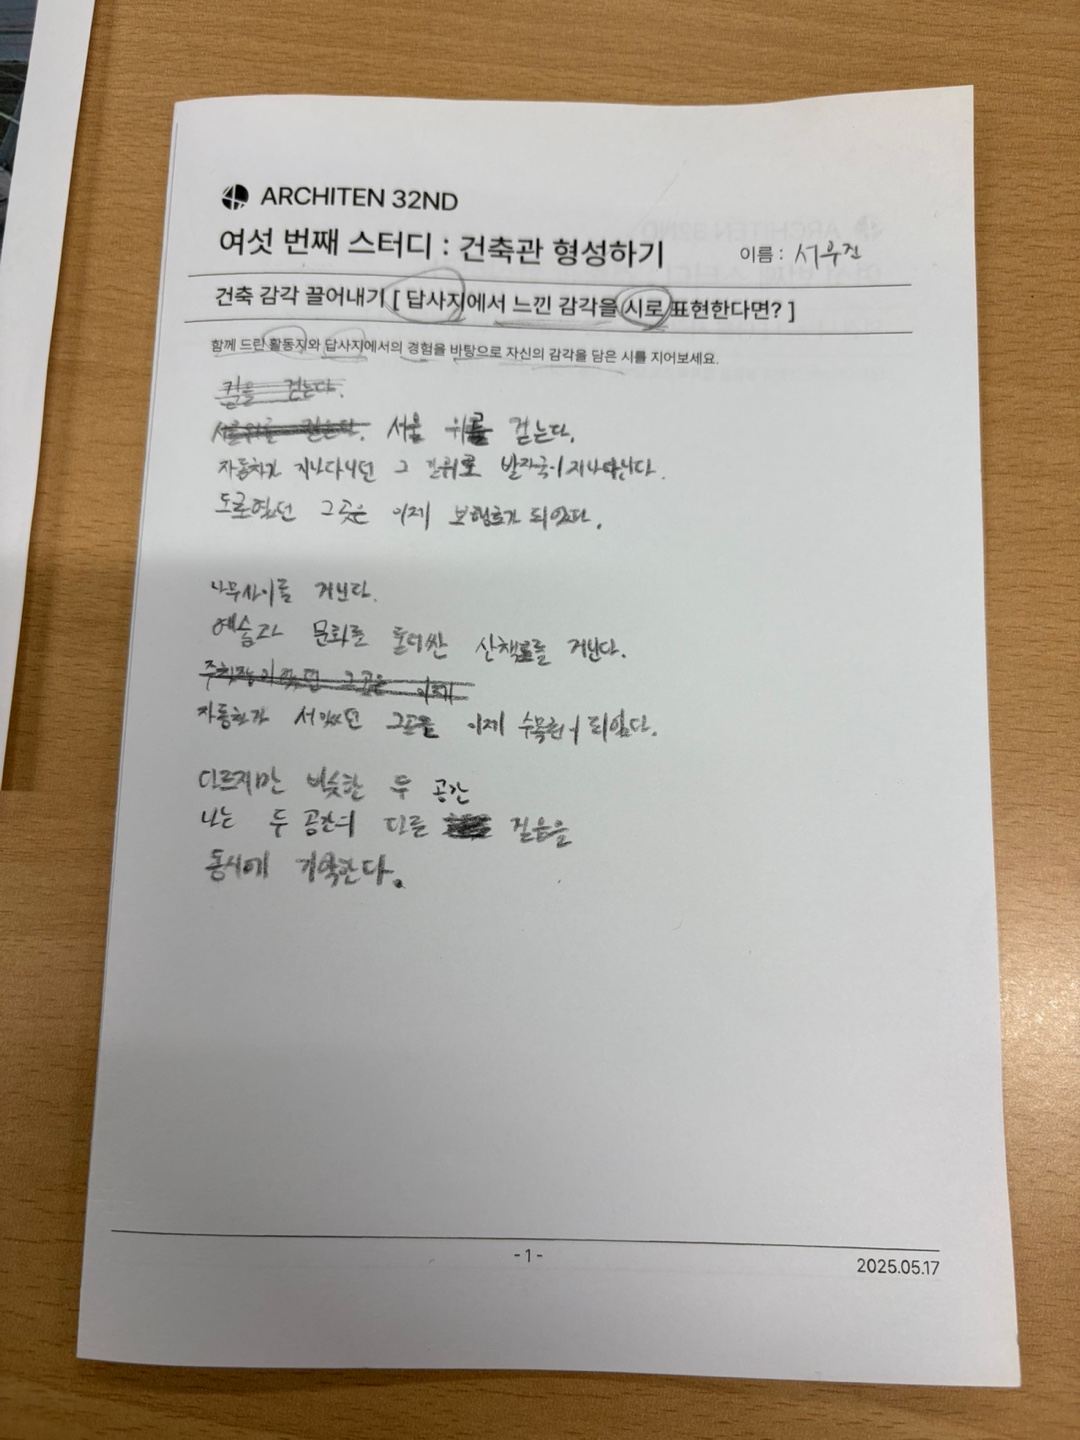 ARCHITEN 32ND
여섯 번째 스터디 : 건축관 형성하기
이름 : 서우진
건축 감각 끌어내기 [ 답사지에서 느낀 감각을 시로 표현한다면? ]
함께 드린 활동지와 답사지에서의 경험을 바탕으로 자신의 감각을 담은 시를 지어보세요.
길을 걷는다.
서울 위를 걷는다.
자동차가 지나다니던 그 길위로 발자국이 지나다닌다.
도로였던 그곳은 이제 보행로가 되었다.
나무사이를 거닌다.
예술과 문화를 둘러싼 산책로를 거닌다.
주차장이었던 그곳은 이제
자동차가 서있던 그곳은 이제 수목원이 되었다.
다르지만 비슷한 두 공간
나는 두 공간의 다른 걸음을
동시에 기억한다.
- 1 -
2025.05.17